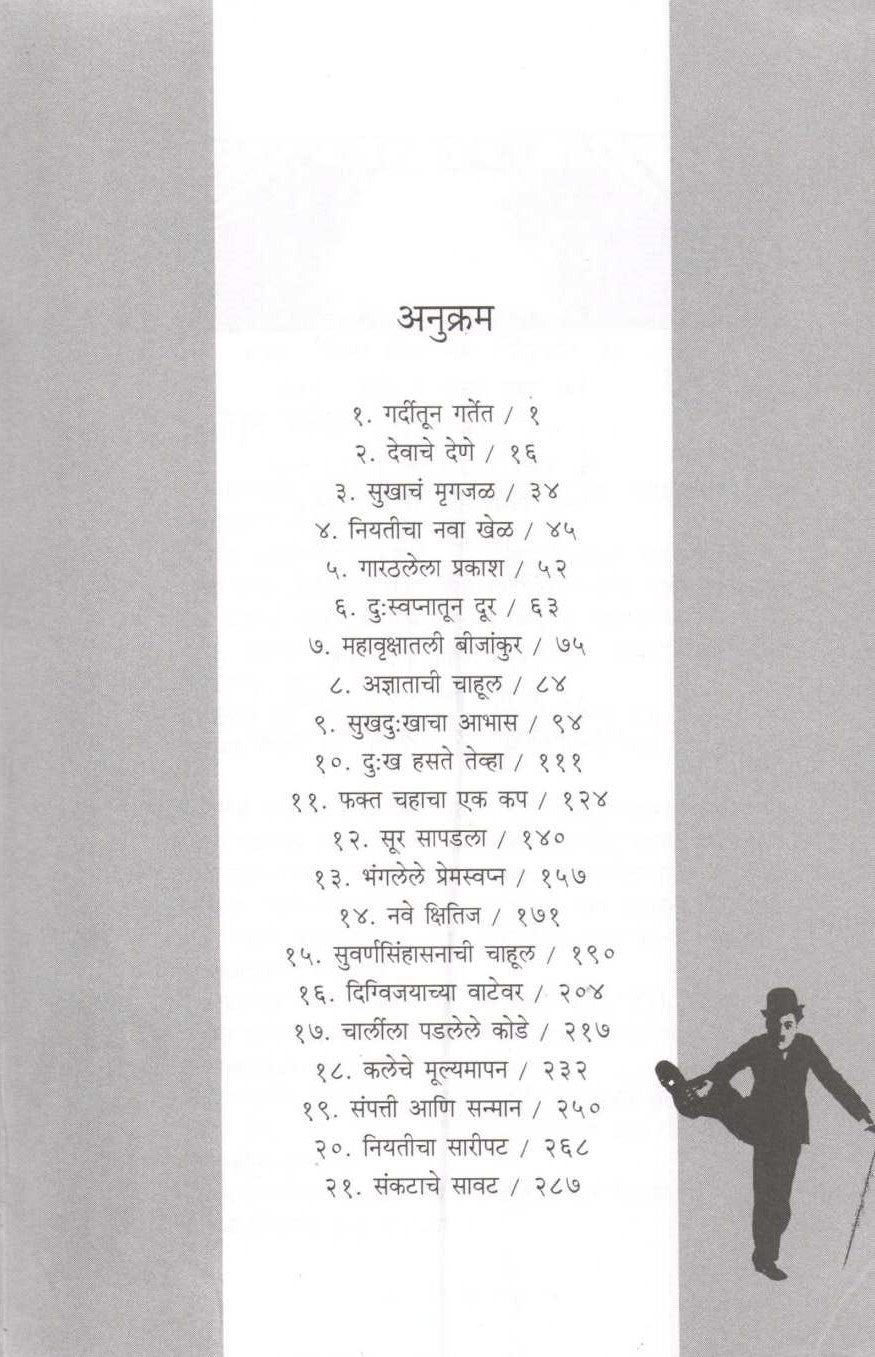 अनुक्रम
१. गर्दीतून गर्तेत / १
२. देवाचे देणे / १६
३. सुखाचं मृगजळ / ३४
४. नियतीचा नवा खेळ / ४५
५. गारठलेला प्रकाश / ५२
६. दुःस्वप्नातून दूर / ६३
७. महावृक्षातली बीजांकुर / ७५
८. अज्ञाताची चाहूल / ८४
९. सुखदुःखाचा आभास / ९४
१०. दुःख हसते तेव्हा / १११
११. फक्त चहाचा एक कप / १२४
१२. सूर सापडला / १४०
१३. भंगलेले प्रेमस्वप्न / १५७
१४. नवे क्षितिज / १७१
१५. सुवर्णसिंहासनाची चाहूल / १९०
१६. दिग्विजयाच्या वाटेवर / २०४
१७. चार्लीला पडलेले कोडे / २१७
१८. कलेचे मूल्यमापन / २३२
१९. संपत्ती आणि सन्मान / २५०
२०. नियतीचा सारीपट / २६८
२१. संकटाचे सावट / २८७